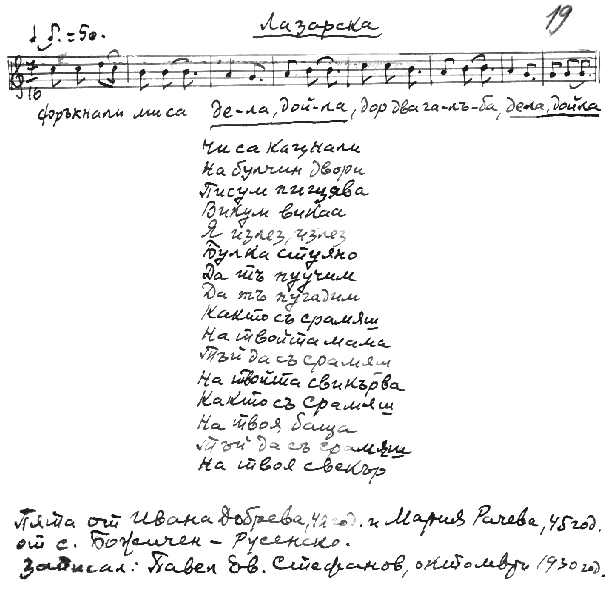 Лазарска
19
♩ ♪. = 50.
фръкнали миса де-ла, дой-ла, дор два га-лъ-ба, дела, дойла
Чи са кацнали
На булчин двори
Писум пищява
Викум викаа
Я излез, излез
Булка стуяно
Да тъ пуучим
Да тъ пугадим
Както съ срамяш
На твойта мама
Тъй да съ срамяш
На твойта свикърва
Както съ срамяш
На твоя баща
Тъй да съ срамяш
На твоя свекър
Пята от Ивана Добрева, 42 год. и Мария Рачева, 45 год.
от с. Божичен – Русенско.
Записал: Павел Ев. Стефанов, октомври 1930 год.